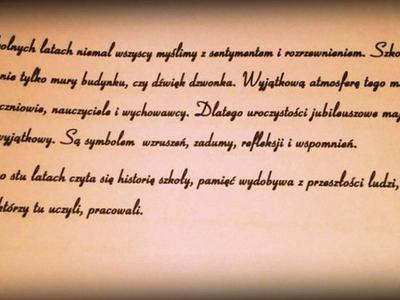 olnych latach niemal wszyscy myślimy z sentymentem i rozrzewnieniem. Szko
nie tylko mury budynku, czy dźwięk dzwonka. Wyjątkową atmosferę tego m
czniowie, nauczyciele i wychowawcy. Dlatego uroczystości jubileuszowe maj
wyjątkowy. Są symbolem wzruszeń, zadumy, refleksji i wspomnień.
o stu latach czyta się historię szkoły, pamięć wydobywa z przeszłości ludzi,
którzy tu uczyli, pracowali.